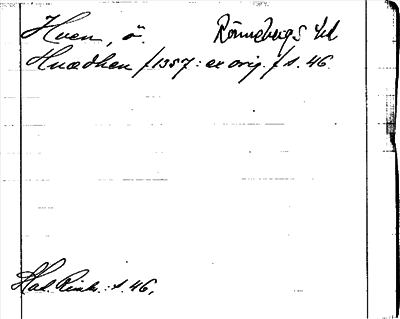 Hven, ö. Rönnebergs hd
Hwædhen /1357: ex orig./ s. 46.
Hal. Rink. s. 46.